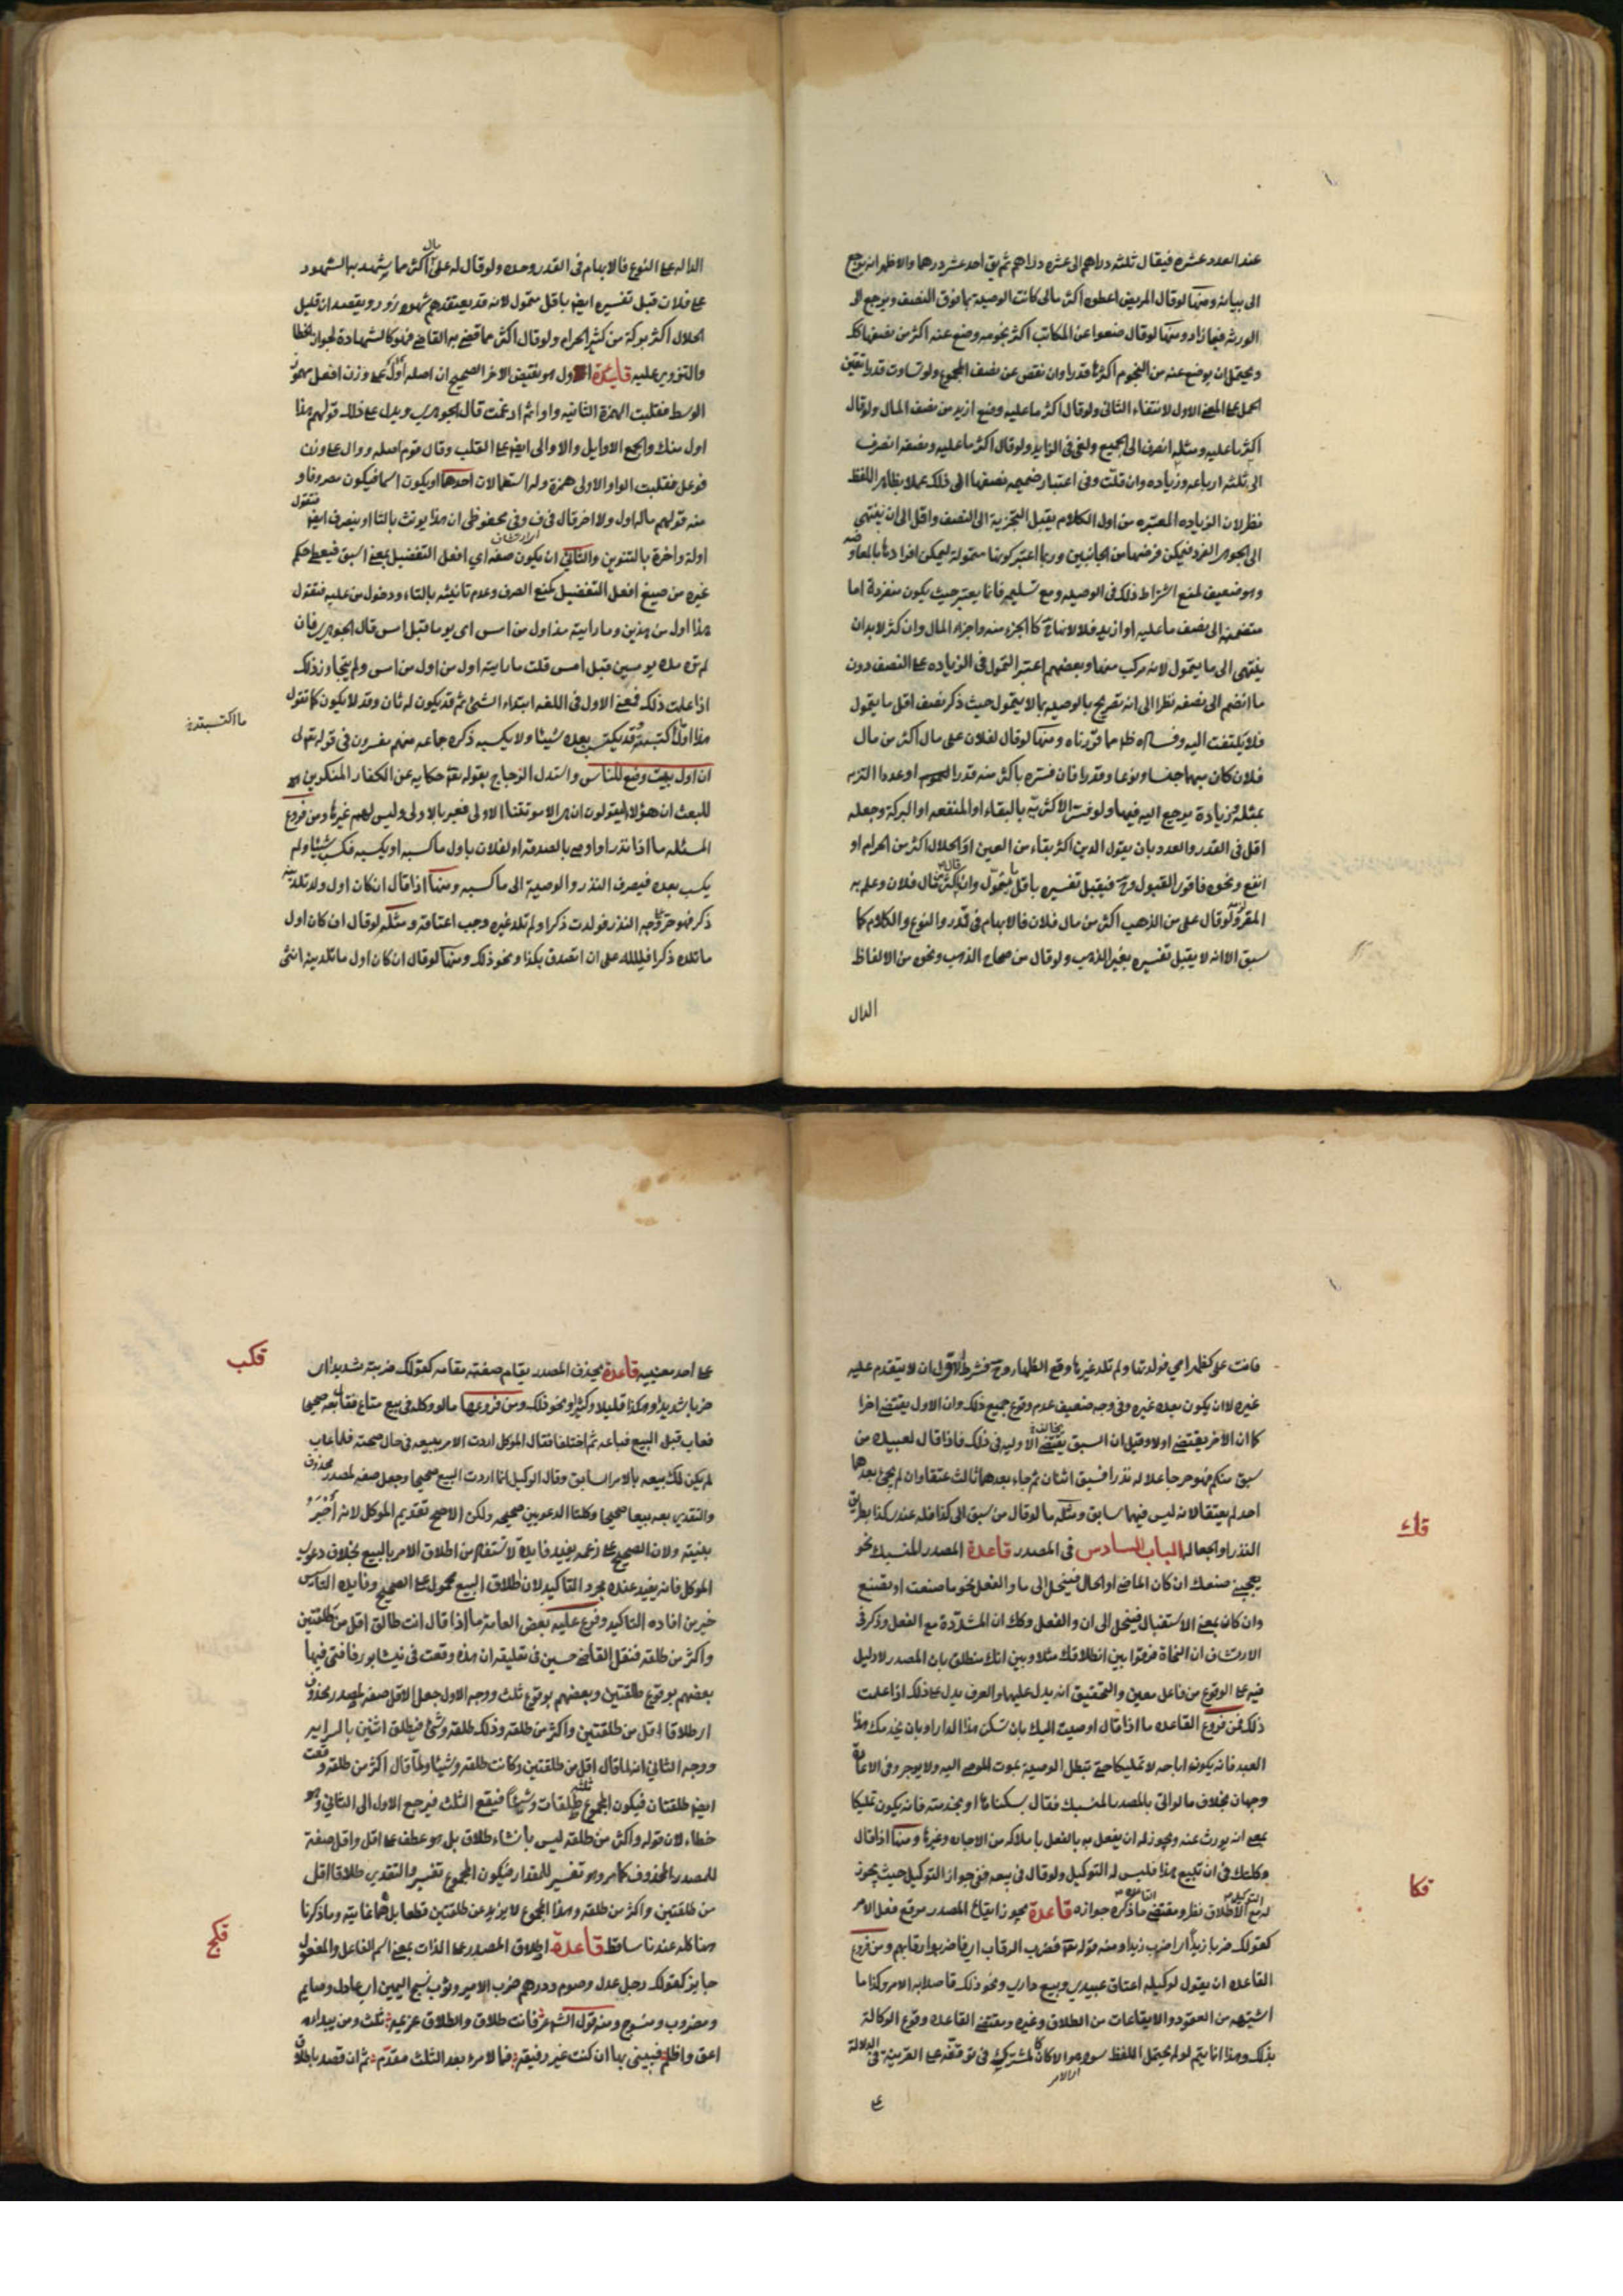 عند العدد عشره فيقال ثلثه دراهم الى عشره دراهم ثم يق احد عشر درهما والاظهر انه يرجع
الى بيانه ومنها لو قال المريض اعطوه اكثر مالى كانت الوصية بما فوق النصف ويرجع الى
الورثه فيما زاد ومنها لو قال ضعوا عن المكاتب اكثر نجومه وضع عنه اكثر من نصفها
ويحتمل ان يوضع عنه من النجوم اكثرها قدرا وان نقص عن نصف المجموع ولو تساوت قدرا تعين
الحمل على المعنى الاول لانتفاء الثانى ولو قال اكثر ما عليه وضع ازيد من نصف المال ولو قال
اكثر ما عليه ومثله انصرف الى الجميع ولغى فى الزايد ولو قال اكثر ما عليه ونصفه انصرف
الى ثلثه ارباعه وزياده وان قلت وفى اعتبار ضميمه نصفها الى ذلك عملا بظاهر اللفظ
نظر لان الزياده المعتبره من اول الكلام يقبل التجزية الى النصف واقل الى ان ينتهى
الى الجوهر الفرد فيمكن فرضها من الجانبين وربما اعتبر كونها متمولة ليمكن افرادها بالمعاوضه
وهو ضعيف لمنع اشتراط ذلك فى الوصيه ومع تسليمه فانما يعتبر حيث يكون منفردة اما
منضمة الى نصف ما عليه او ازيد فلا لانها ح كالجزء منه واجزاء المال وان كثر لا بد ان
ينتهى الى ما يتمول لانه مركب منها وبعضهم اعتبر التمول فى الزياده على النصف دون
ما انضم الى نصفه نظرا الى انه تصريح بالوصيه بما لا يتمول حيث ذكر نصف اقل ما يتمول
فلا يلتفت اليه وفساده ظهر مما قررناه ومنها لو قال لفلان على مال اكثر من مال
فلان كان مبهما جنسا ونوعا وقدرا فان فسره باكثر منه قدرا او عددا التزم
بمثله وزيادة يرجع اليه فيها ولو فسر الاكثريه بالبقاء او المنفعه او البركة وجعله
اقل فى القدر والعدد بان يقول الدين اكثر بقاء من العين او الحلال اكثر من الحرام او
انفع ونحوه فاقوى القبول وح فيقبل تفسيره باقل ما يتمول وان كثر مال فلان وعلم به
المقر ولو قال على من الذهب اكثر من مال فلان فالابهام فى القدر والنوع والكلام كما
سبق الا انه لا يقبل تفسيره بغير الذهب ولو قال من صحاح الذهب ونحوه من الالفاظ
الدال
الداله على النوع فالابهام فى القدر وحده ولو قال له على مال اكثر مما يشهد به الشهود
على فلان قبل تفسيره ايضا باقل متمول لانه قد يعتقدهم شهود زور ويقصد ان قليل
الحلال اكثر بركة من كثير الحرام ولو قال اكثر مما قضى به القاضى فهو كالشهادة لجواز الخطا
والتزوير عليه فايدة الاول هو نقيض الاخر الصحيح ان اصله اوأل على وزن افعل مهموز
الوسط فقلبت الهمزة الثانيه واوا ثم ادغمت قال الجوهرى ويدل على ذلك قولهم هذا
اول منك والجمع الاوايل والاوالى ايضا على القلب وقال قوم اصله ووال على وزن
فوعل فقلبت الواو الاولى همزة وله استعمالات احدها ان يكون اسما فيكون مصروفا و
منه قولهم ماله اول ولا اخر قال فى ف وفى محفوظى ان هذا يونث بالتا او ينصرف ايضا فتقول
اولة واخرة بالتنوين والثانى ان يكون صفه اى افعل التفضيل بمعنى اسبق فيعطى حكم
ارتشاف
غيره من صيغ افعل التفضيل كمنع الصرف وعدم تانيثه بالتاء ودخول من عليه فتقول
هذا اول من هذين وما رايته مذ اول من امس اى يوما قبل امس قال الجوهرى فان
لم تره مذ يومين قبل امس قلت ما رايته اول من اول من امس ولم يتجاوز ذلك
اذا علمت ذلك فمعنى الاول فى اللغه ابتداء الشئ ثم قد يكون له ثان وقد لا يكون كما تقول
هذا اول ما اكتسبته وقد يكتسب بعده شيئا ولا يكسبه ذكره جماعه منهم مفسرون فى قوله تعالى
ما اكتسبته
ان اول بيت وضع للناس واستدل الزجاج بقوله تع حكايه عن الكفار المنكرين
للبعث ان هؤلاء ليقولون ان هى الا موتتنا الاولى فعبر بالاولى وليس لهم غيرها ومن فروع
المسئله ما اذا نذر او اوصى بالصدقه او لفلان باول ما كسبه او يكسبه فكسب شيئا ولم
يكسب بعده فيصرف النذر والوصية الى ما كسبه ومنها اذا قال ان كان اول ولد تلدينه
ذكر فهو حر على وجه النذر فولدت ذكرا ولم تلد غيره وجب اعتاقه ومثله لو قال ان كان اول
ما تلده ذكرا فلله على ان اتصدق بكذا ونحو ذلك ومنها لو قال ان كان اول ما تلدينه انثى
فانت على كظهر امى فولدتها ولم تلد غيرها وقع الظهار وح فشرط الاول ان لا يتقدم عليه
غيره لا ان يكون بعده غيره وفى وجه ضعيف عدم وقوع جميع ذلك وان الاول يقتضى اخرا
كما ان الاخر يقتضى اولا وقيل ان السبق يقتضى الاوليه فى ذلك فاذا قال لعبيده من
بخالفه
سبق منكم فهو حر جاعلا له نذرا فسبق اثنان ثم جاء بعدهما ثالث عتقا وان لم يجئ بعدهما
احد لم يعتقا لانه ليس فيهما سابق ومثله ما لو قال من سبق الى كذا فله عندى كذا بطريق
النذر او الجعاله الباب السادس فى المصدر قاعدة المصدر المنسبك نحو
قك
يعجبنى صنعك ان كان الماضى او الحال فينحل الى ما والفعل نحو ما صنعت او تصنع
وان كان بمعنى الاستقبال فينحل الى ان والفعل وكك ان المشددة مع الفعل وذكر فى
الارتشاف ان النحاة فرقوا بين انطلاقك مثلا وبين انك منطلق بان المصدر لا دليل
فيه على الوقوع من فاعل معين والتحقيق انه يدل عليها والعرف يدل على ذلك اذا علمت
ذلك فمن فروع القاعده ما اذا قال اوصيت اليك بان تسكن هذا الدار او بان يخدمك هذا
العبد فانه يكون اباحه لا تمليكا حتى تبطل الوصية بموت الموصى اليه ولا يوجر وفى الاعارة
وجهان بخلاف ما لو اتى بالمصدر المنسبك فقال بسكناها او بخدمته فانه يكون تمليكا
بمعنى انه يورث عنه ويجوز له ان يفعل به بالفعل باملاكه من الاجاره وغيرها ومنها اذا قال
وكلتك فى ان تبيع هذا فليس له التوكيل ولو قال فى بيعه ففى جواز التوكيل حيث يجوز
فكا
له مع الاطلاق نظر ومقتضى ما ذكره جوازه قاعدة يجوز ايقاع المصدر موقع فعل الامر
كقولك ضربا زيدا اى اضرب زيدا ومنه قوله تع فضرب الرقاب اى فاضربوا رقابهم ومن فروع
القاعده ان يقول لوكيله اعتاق عبيدى وبيع دارى ونحو ذلك قاصدا به الامر وكذا ما
اشبهه من العقود والايقاعات من الطلاق وغيره ومقتضى القاعده وقوع الوكالة
بذلك وهذا انما يتم لو لم يحتمل اللفظ سوى هو الا كان كالمشترك فى توقفه على القرينة فى الدلالة
اى الامر
على
على احد معنييه قاعدة يحذف المصدر يقام صفته مقامه كقولك ضربته شديدا اى
قكب
ضربا شديدا وهكذا قليلا وكثيرا ونحو ذلك ومن فروعها ما لو وكله فى بيع متاع فقال بعه صحيحا
فعاب قبل البيع فباعه ثم اختلفا فقال الموكل اردت الامر ببيعه فى حال صحته فلما عاب
لم يكن لك بيعه بالامر السابق وقال الوكيل انما اردت البيع صحيحا وجعل صفه لمصدر محذوف
والتقدير بعه بيعا صحيحا وكلتا الدعويين صحيحه ولكن الاصح تقديم الموكل لانه اخبر
بنيته ولان الصحيح على زعمه يفيد فايدة لا تستفاد من اطلاق الامر بالبيع بخلاف دعوى
الموكل فانه يفيد عنده مجرد التاكيد لان اطلاق البيع محمول على الصحيح وفايده التاسيس
خير من افاده التاكيد وفرع عليه بعض العامة ما اذا قال انت طالق اقل من طلقتين
واكثر من طلقه فنقل القاضى حسين فى تعليقه ان هذه وقعت فى نيشابور فافتى فيها
بعضهم بوقوع طلقتين وبعضهم بوقوع ثلث ووجه الاول جعل الاقل صفه لمصدر محذوف
اى طلاقا اقل من طلقتين واكثر من طلقه وذلك طلقه وشئ فيطلق اثنتين بالسرايه
ووجه الثانى انه لما قال اقل من طلقتين وكانت طلقه وشيئا ولما قال اكثر من طلقه وقعت
ايضا طلقتان فيكون المجموع ثلث طلقات وشيئا فيقع الثلث فيرجع الاول الى الثانى وهو
خطاء لان قوله واكثر من طلقه ليس بانشاء طلاق بل هو عطف على اقل واقل صفة
للمصدر المحذوف كما مر وهو تفسير للمقدار فيكون المجموع تفسير والتقدير طلاقا اقل
من طلقتين واكثر من طلقه وهذا المجموع لا يزيد عن طلقتين قطعا بل هما غايته وما ذكرنا
هنا كله عندنا ساقط قاعدة اطلاق المصدر على الذات بمعنى اسم الفاعل والمفعول
قكج
جايز كقولك رجل عدل وصوم ودرهم ضرب الامير وثوب نسج اليمن اى عادل وصايم
ومضروب ومنسوج ومنه قول الشاعر فانت طلاق والطلاق عزيمه ثلث ومن يبداه
اعق واظلم فبينى بها ان كنت غير رفيقه فما لامرء بعد الثلث مقدم ثم ان قصد باطلاق